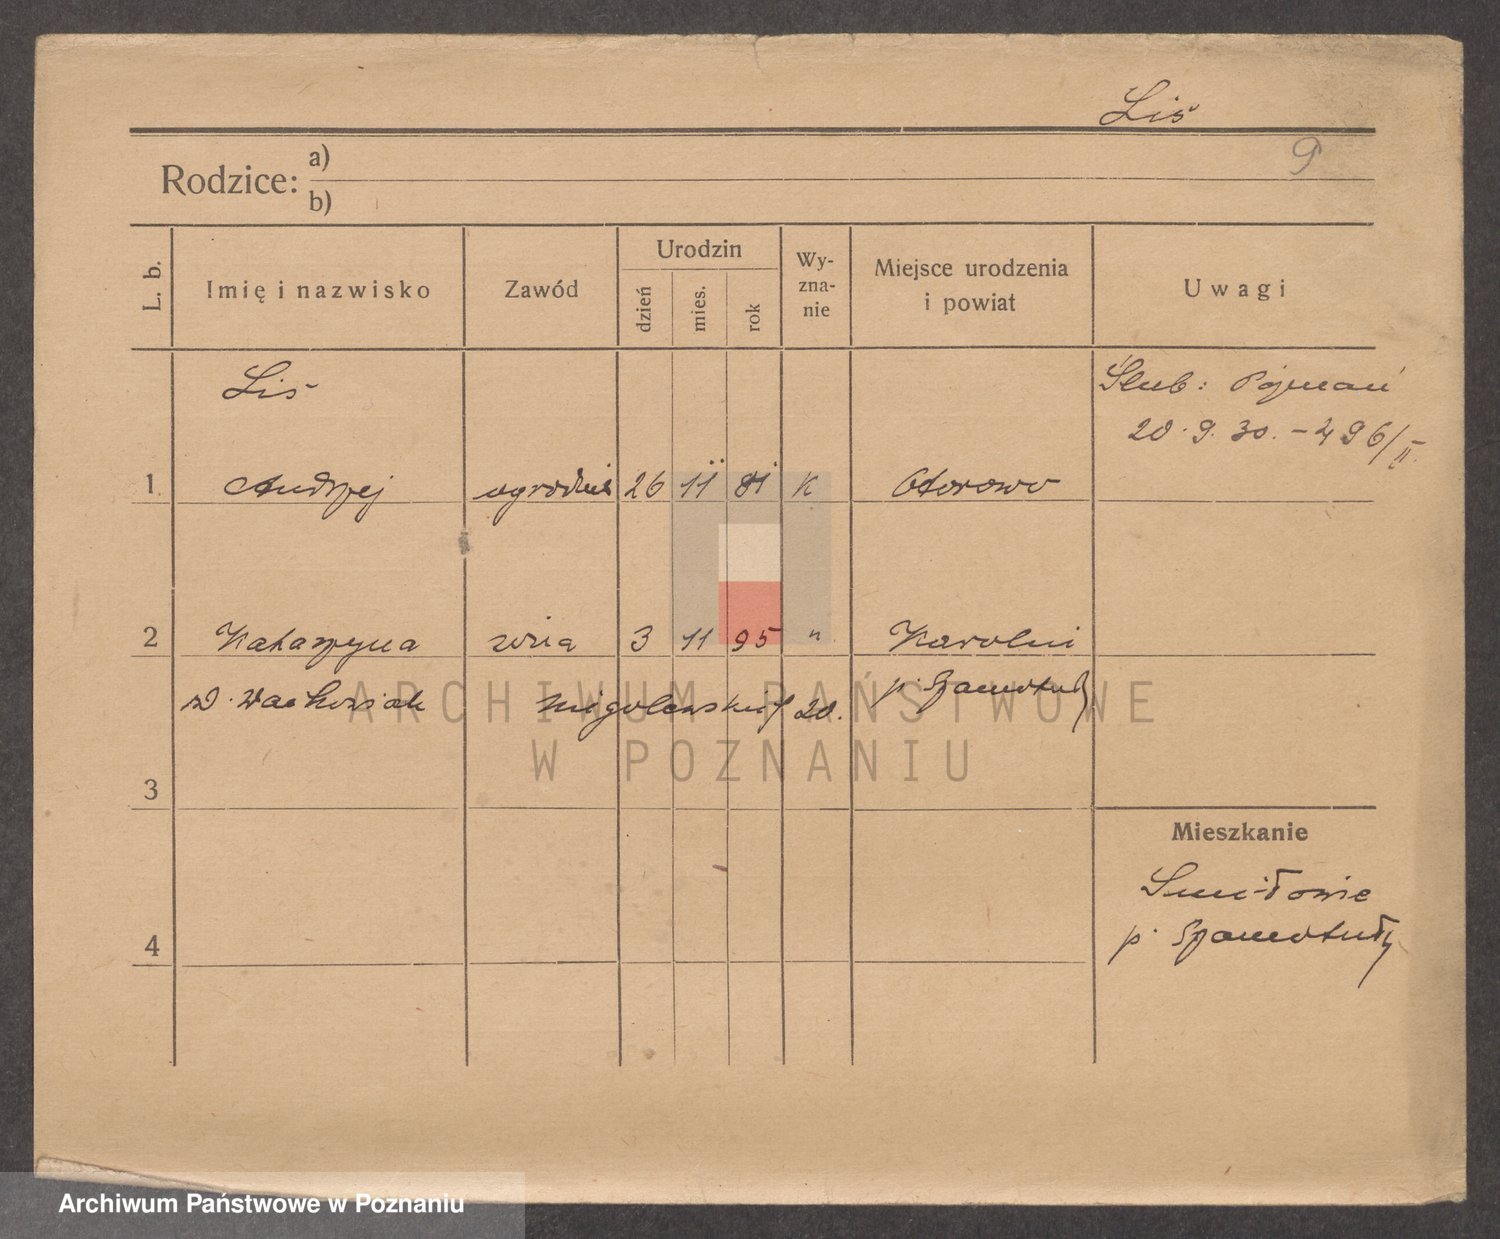 Liś
9
Rodzice: a)
b)
L. b. Imię i nazwisko Zawód Urodzin dzień mies. rok Wy-zna-nie Miejsce urodzenia i powiat Uwagi
Liś Ślub: Poznań
20.9.30. - 496/II.
1 Andrzej ogrodnik 26 11 81 K Otorowo
2 Katarzyna żona 3 11 95 " Karolin
Wachowiak Niegolewskich 20. p. Szamotuły
ARCHIWUM PAŃSTWOWE
W POZNANIU
3
Mieszkanie
Śmiłowie
p. Szamotuły
4
Archiwum Państwowe w Poznaniu